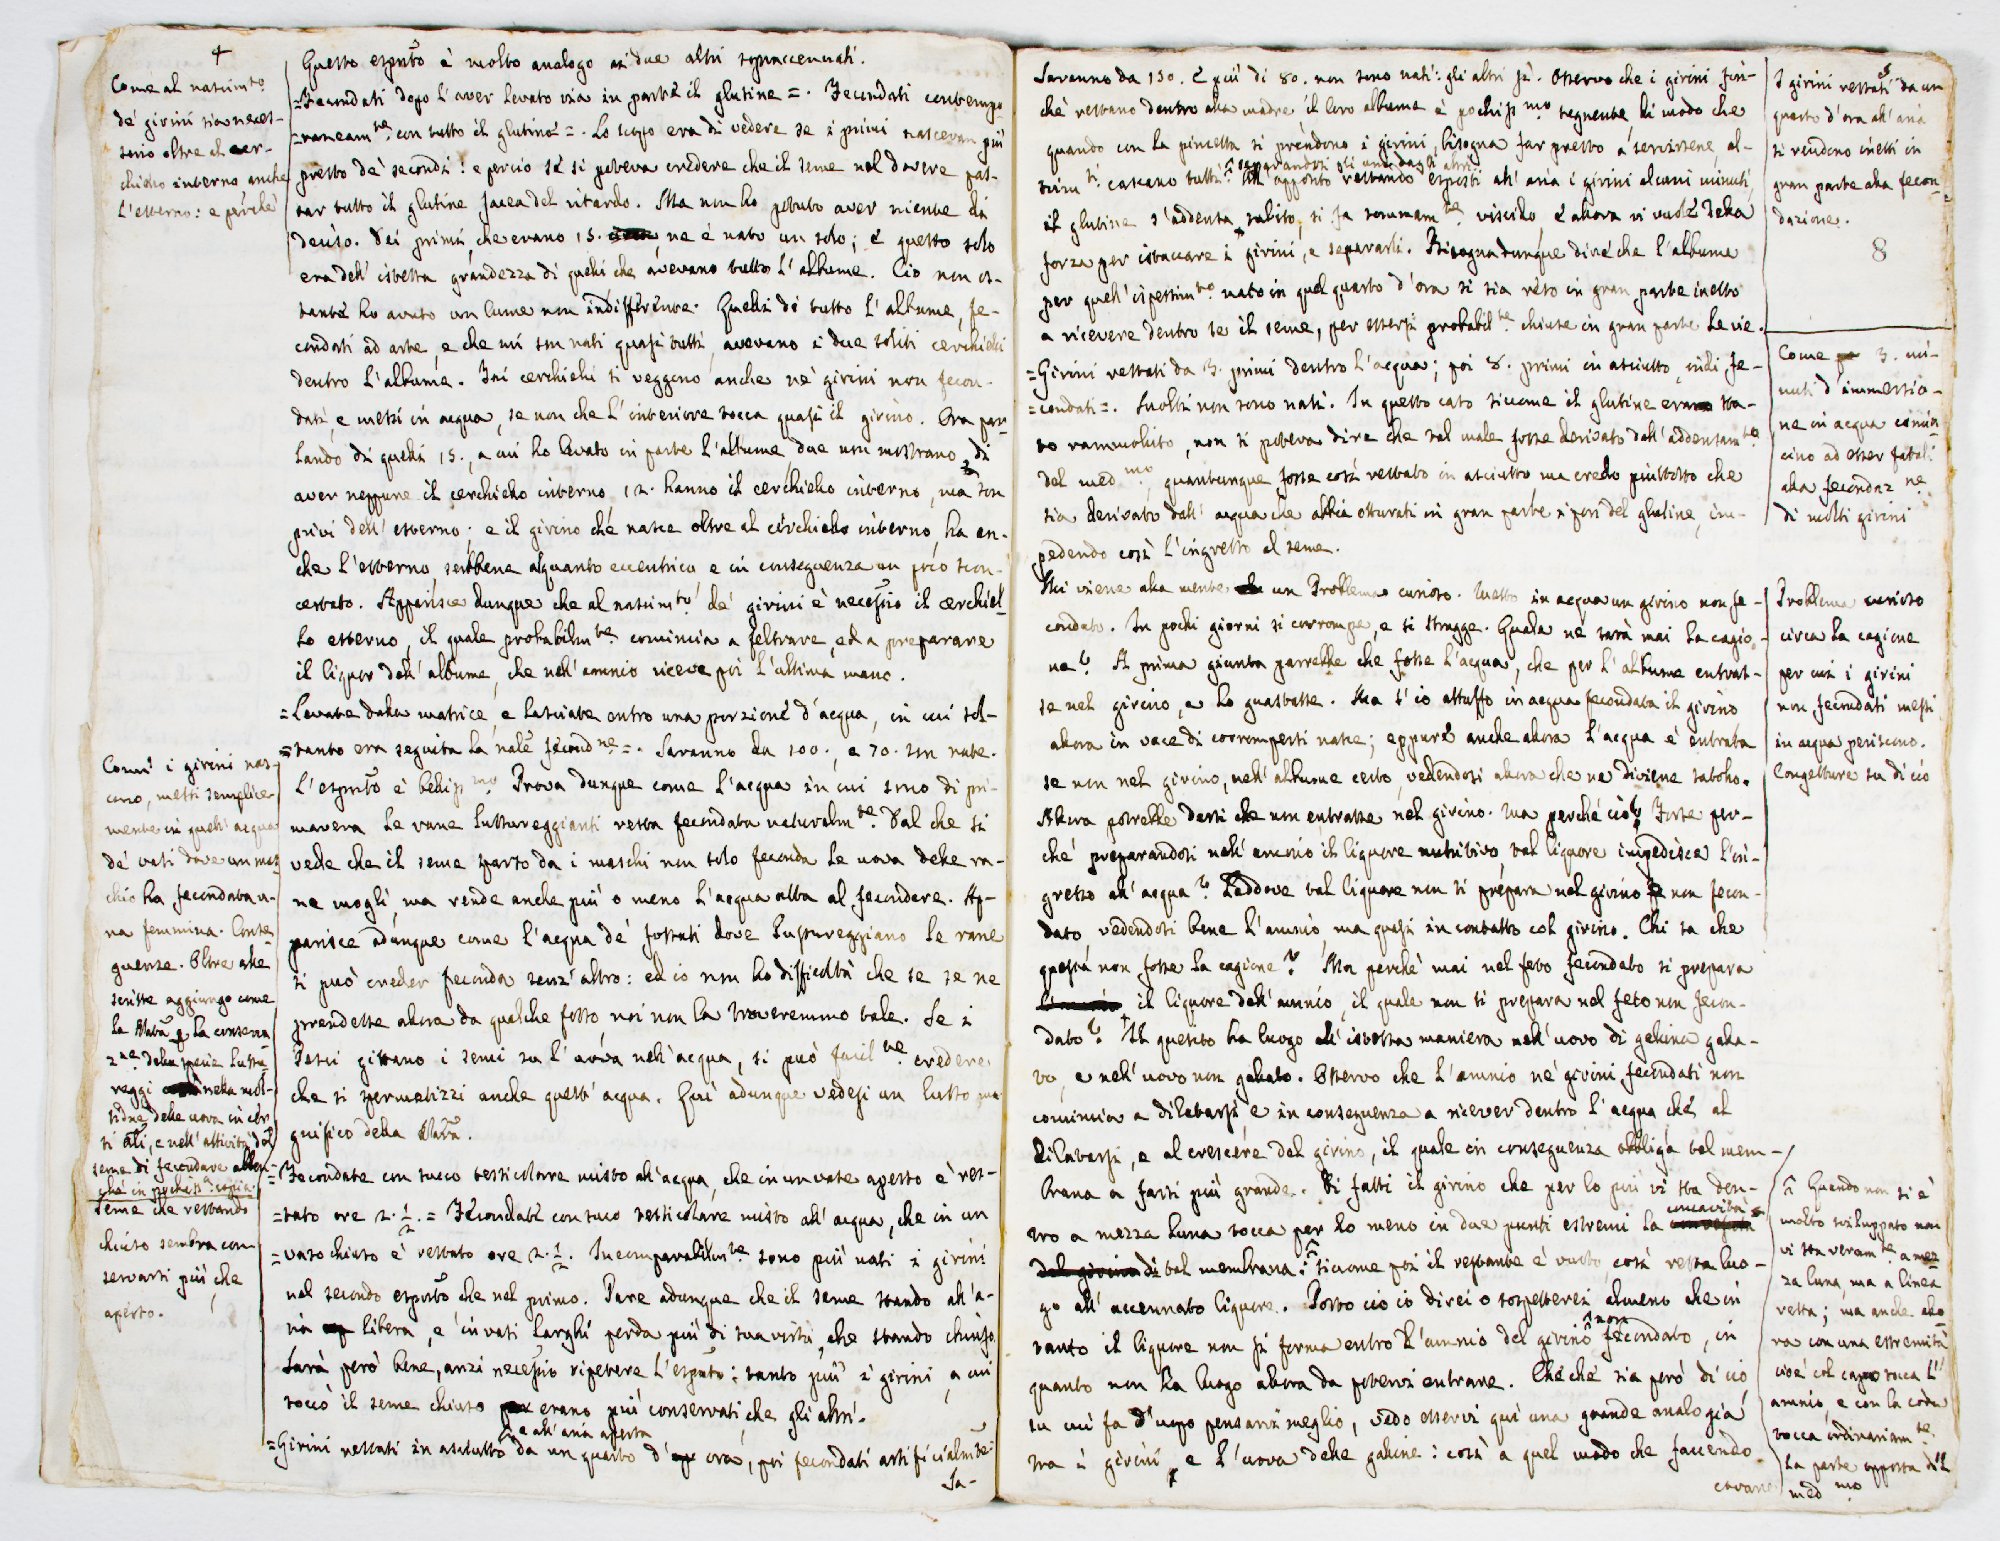 4
Come al nascim.to
de' girini sia neces-
sario oltre al cer-
chietto interno anche
l'esterno: e perchè
Questo esprto è molto analogo ai due altri sopraccennati.
=Fecondati dopo l'aver levato via in parte il glutine=. Fecondati contempo-
=raneam.te con tutto il glutine=. Lo scopo era di vedere se i primi nascevan più
presto de' secondi: e perciò se si poteva credere che il seme nel dovere pas-
sar tutto il glutine facea del ritardo. Ma non ho potuto aver niente di
deciso. Dei primi, che erano 15. ne è nato un solo; e questo solo
era dell'istessa grandezza di quelli che avevano tutto l'albume. Ciò non os-
tante ho avuto un lume non indifferente. Quelli di tutto l'albume, fe-
condati ad arte, e che mi son nati quasi tutti, avevano i due soliti cerchielli
dentro l'albume. Tai cerchielli si veggono anche ne' girini non fecon-
dati, e messi in acqua, se non che l'interiore tocca quasi il girino. Ora par-
lando di quelli 15., a cui ho levato in parte l'albume, due non mostrano di
aver neppure il cerchiello interno, 12. hanno il cerchiello interno, ma son
privi dell'esterno; e il girino che nasce oltre al cerchiello interno, ha an-
che l'esterno, sebbene alquanto eccentrico e in conseguenza un poco scon-
certato. Apparisce dunque che al nascim.to de' girini è necessio il cerchiel-
lo esterno, il quale probabilm.te comincia a feltrare, ed a preparare
il liquor dell'albume, che nell'amnio riceve poi l'ultima mano.
Come i girini nas-
cono, messi semplice-
mente in quell'acqua
de' vasi dove un mas-
chio ha fecondata u-
na femmina. Conse-
guenze. Oltre alle
scritte aggiungo come
la Natura p la conserva
z.ne della specie lussu-
reggi nella mol-
titdne delle uova in cer-
ti ali, e nell'attività del
seme di fecondare allor-
chè in pochiss.a copia.
Seme che restando
chiuso sembra con-
servarsi più, che
aperto.
=Levate dalla matrice, e lasciate entro una porzione d'acqua, in cui sol-
=tanto era seguita la nale fecond.ne=. Saranno da 100., e 70. son nate.
L'esprto è bellis.mo Prova dunque come l'acqua in cui sono di pri-
mavera le rane lussureggianti resta fecondata naturalm.te. Dal che si
vede che il seme sparso da i maschi non solo feconda le uova delle ra-
ne mogli, ma rende anche più o meno l'acqua atta al fecondare. Ap-
parisce adunque come l'acqua de' fossati dove lussureggiano le rane
si può creder feconda senz'altro: ed io non ho difficoltà che se se ne
prendesse allora da qualche fosso, noi non la troveremmo tale. Se i
Pesci gittano i semi su l'uova nell'acqua, si può facil.te credere
che si spermatizzi anche quest'acqua. Qui adunque vedesi un lusso ma-
gnifico della Natura.
=Fecondate con succo testicolare misto all'acqua, che in un vase aperto è res-
=tato ore 2. 1/2.= Fecondate con suco testicolare misto all'acqua, che in un
=vaso chiuso è restato ore 2. 1/2. Incomparabilm.te sono più nati i girini
nel secondo esprto che nel primo. Pare adunque che il seme stando all'a-
ria libera, e in vasi larghi perda più di sua virtù, che stando chiuso.
Sarà però bene, anzi necessio ripetere l'esprto: tanto più i girini, a cui
toccò il seme chiuso erano più conservati, che gli altri.
e all'aria aperta
=Girini restati in asciutto da un quarto d' ora, poi fecondati artificialm.te:
Sa-
Saranno da 130. E più di 80. non sono nati: gli altri sì. Osservo che i girini fin-
chè restano dentro alla madre il loro albume è pochis.mo tegnente di modo che
quando con la pincetta si prendono i girini, bisogna far presto a servirsene, al-
separandosi gli uni dagli altri
trim.ti cascano tutti: All'opposto restando esposti all'aria i girini alcuni minuti,
il glutine s'addensa subito, si fa sommam.te viscido e allora vi vuole della
forza per istaccare i girini, e separarli. Bisogna dunque dire che l'albume
per quell'ispessim.to nato in quel quarto d'ora si sia reso in gran parte inetto
a ricevere dentro se il seme, per essersi probabil.te chiuse in gran parte le vie.
=Girini restati da 3. primi dentro l'acqua; poi 8. primi in asciutto, indi fe-
=condati=. Molti non sono nati. In questo caso siccome il glutine era sta-
to rammollito, non si poteva dire che tal male fosse derivato dall'addensam.to
del med.mo, quantunque fosse così restato in asciutto ma credo piuttosto che
sia derivato dall'acqua che abbia otturati in gran parte i pori del glutine, im-
pedendo così l'ingresso al seme.
Mi viene alla mente un Problema curioso. Metto in acqua un girino non fe-
condato. In pochi giorni si corrompe, e si strugge. Quale ne sarà mai la cagio-
ne? A prima giunta parrebbe che fosse l'acqua, che per l'albume entras-
se nel girino, e lo guastasse. Ma s'io attuffo in acqua fecondata il girino
allora in vece di corrompersi nasce; eppure anche allora l'acqua è entrata
se non nel girino, nell'albume certo, vedendosi allora che ne diviene satollo.
Allora potrebbe darsi che non entrasse nel girino. Ma perchè ciò? Forse per-
chè preparandosi nell'amnio il liquore nutritivo, tal liquore impedisce l'in-
gresso all'acqua? Laddove tal liquore non si prepara nel girino non fecon-
dato, vedendosi bene l'amnio, ma quasi in contatto col girino. Chi sa che
questa non fosse la cagione? Ma perchè mai nel feto fecondato si prepara
il liquore dell'amnio, il quale non si prepara nel feto non fecon-
dato? Il quesito ha luogo all'istessa maniera nell'uovo di gallina galla-
to, e nell'uovo non gallato. Osservo che l'amnio ne' girini fecondati non
comincia a dilatarsi, e in conseguenza a ricever dentro l'acqua, che al
dilatarsi, e al crescere del girino, il quale in conseguenza obbliga tal mem-
brana a farsi più grande. Di fatti il girino che per lo più vi sta den-
concavità
tro a mezza luna tocca per lo meno in due punti estremi la
di tal membrana: siccome poi il restante è vuoto, così resta luo-
go all'accennato liquore. Posto ciò io direi o sospetterei almeno che in
non
tanto il liquore non si forma entro l'amnio del girino fecondato, in
quanto non ha luogo allora da potervi entrare. Checchè sia però di ciò
su cui fa d'uopo pensarvi meglio, vedo esservi quì una grande analogia
tra i girini, e l'uova delle galline: così a quel modo che facendo
covare
I girini restati da un
quarto d'ora all'aria
si rendono inetti in
gran parte alla fecon-
dazione.
8
Come 3. mi-
nuti d'immersio-
ne in acqua comin-
cino ad esser fatali
alla fecondaz.ne
di molti girini
Problema curioso
circa la cagione
per cui i girini
non fecondati messi
in acqua periscono.
Congetture su di ciò
Quando non si è
molto sviluppato non
vi sta veram.te a mez-
za luna, ma a linea
retta; ma anche allo-
ra con una estremità
cioè col capo tocca l'
amnio, e con la coda
tocca ordinariam.te
la parte opposta del
med.mo